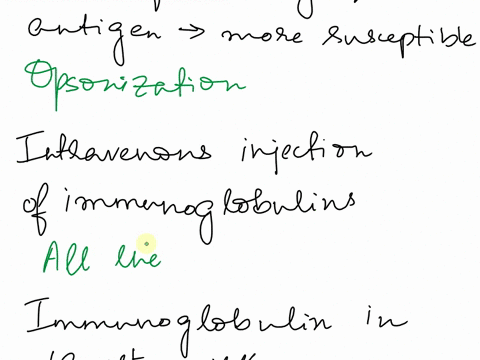 antigen → more susceptible
Opsonization
Intravenous injection
of immunoglobulins
All the
Immunoglobulin in